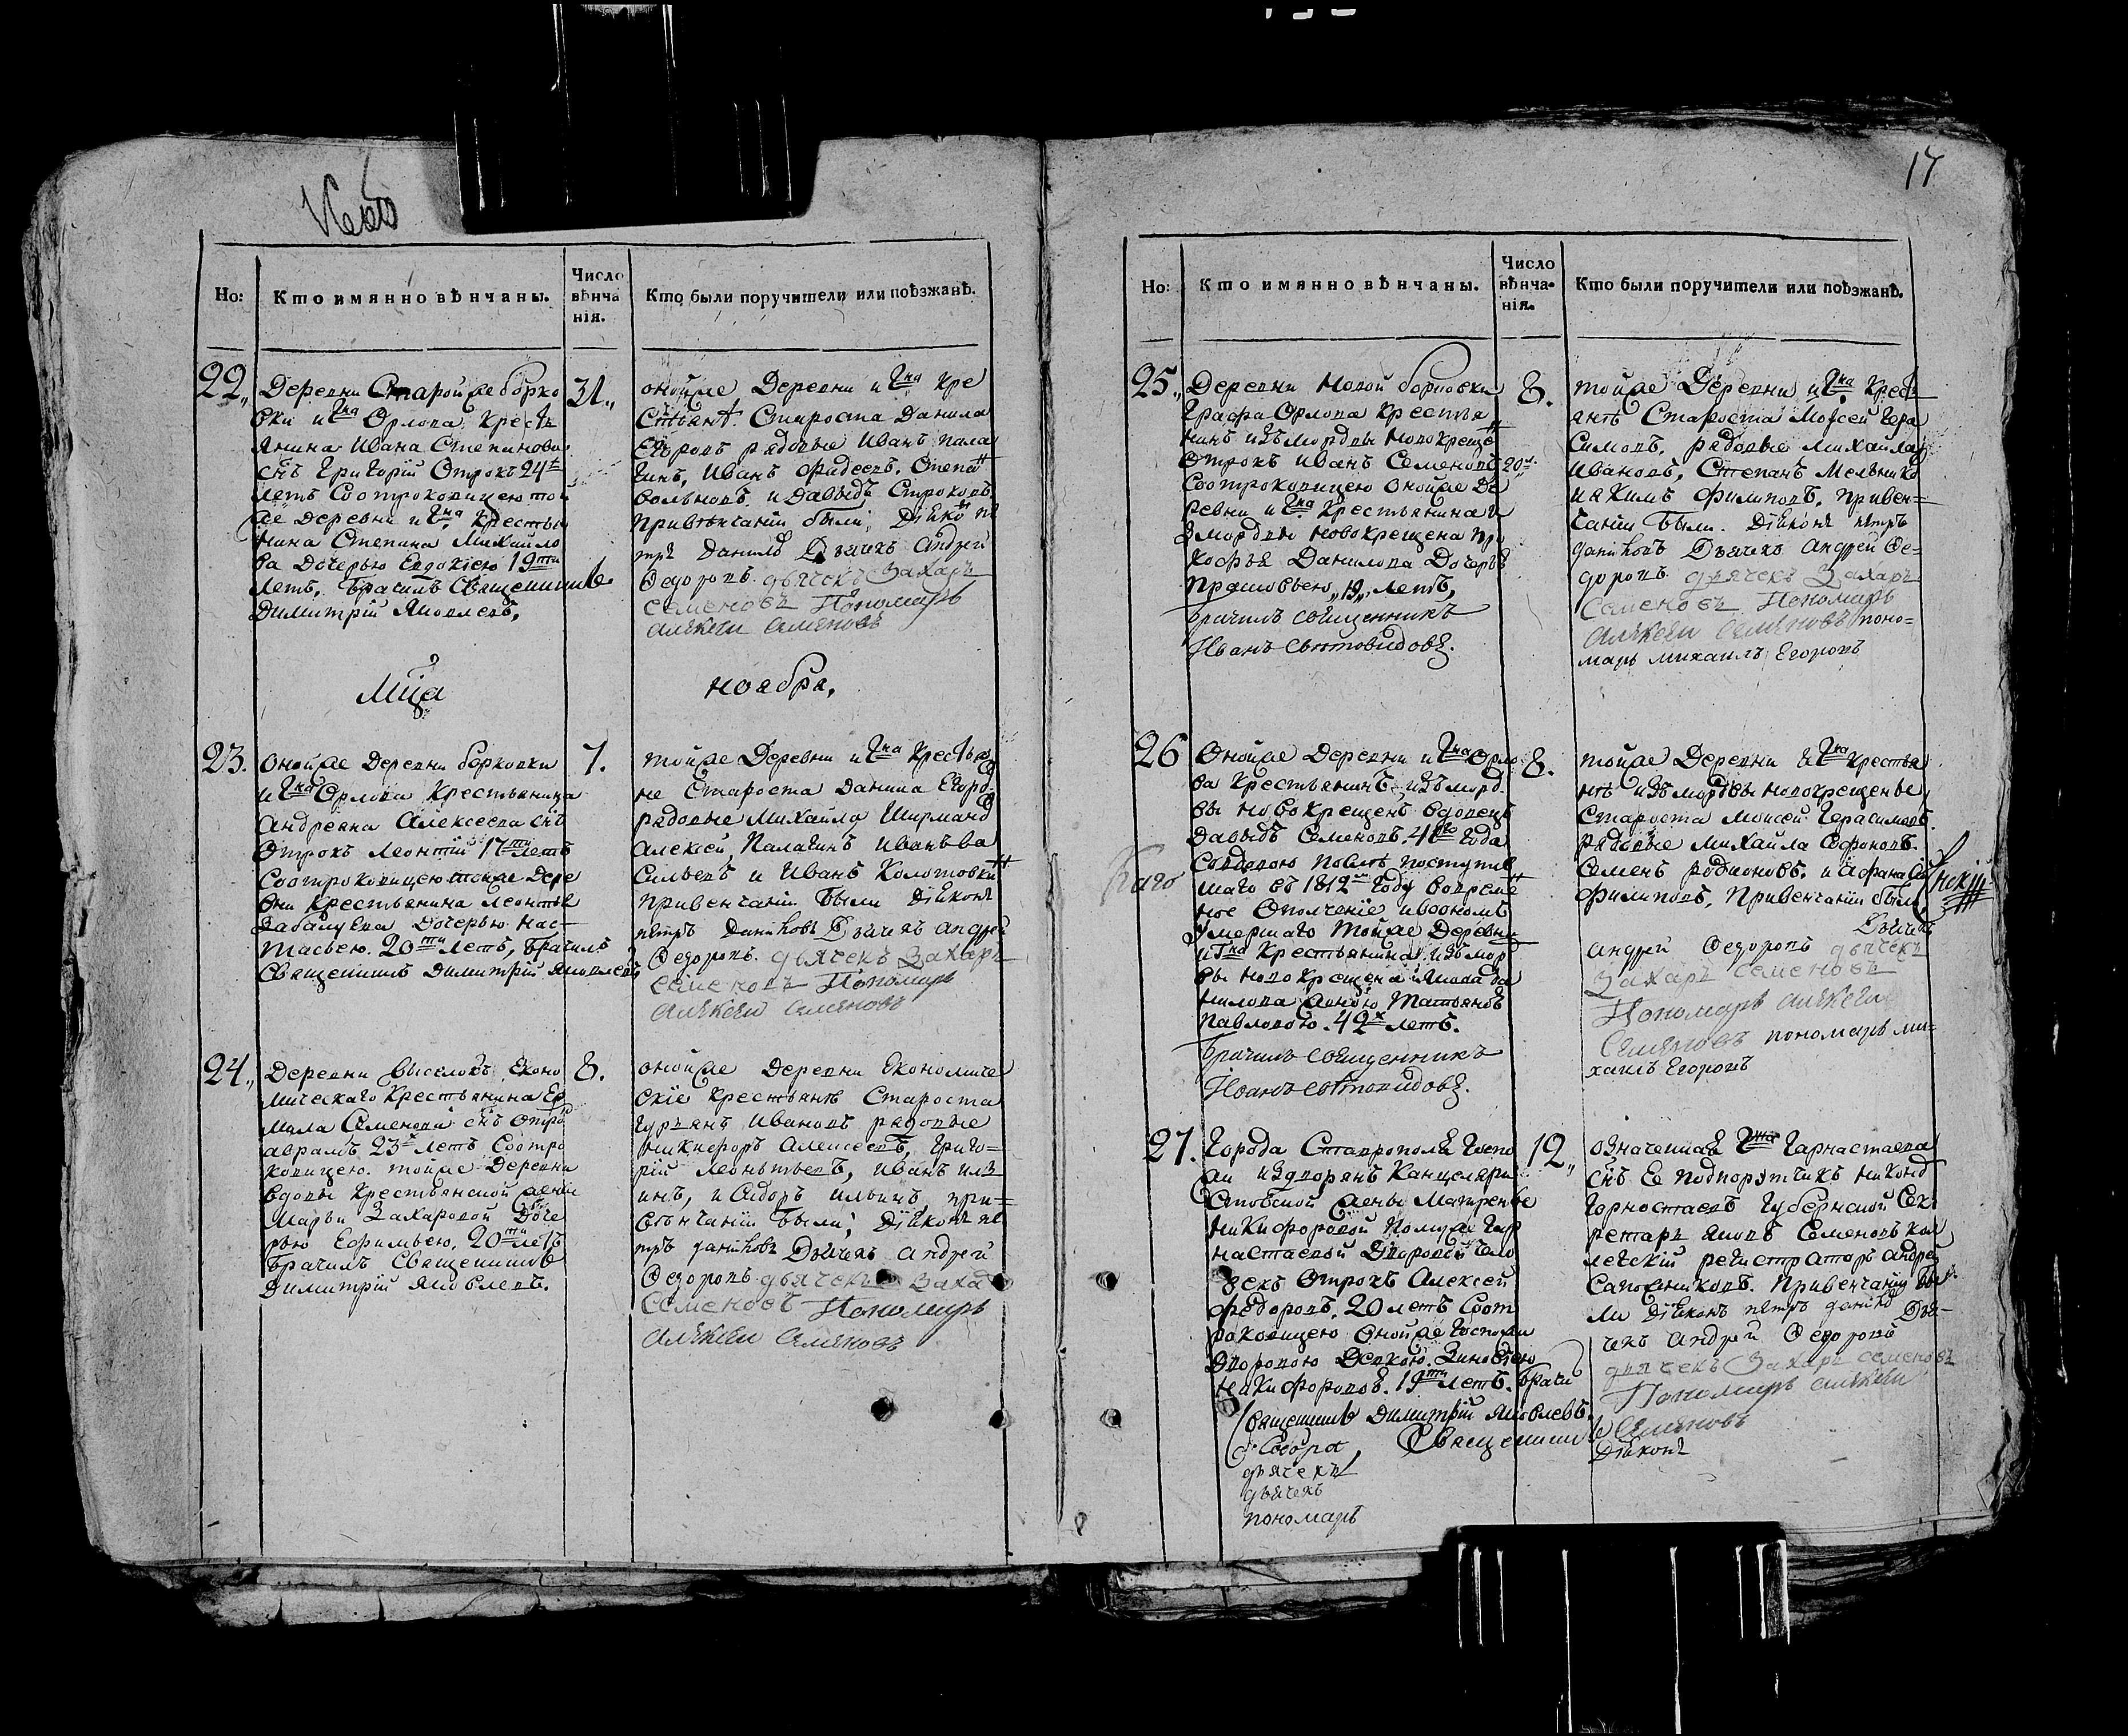 17
Но:
Кто имянно вѣнчаны.
Число вѣнча нія.
Кто были поручители или поѣзжанѣ.
22„
Деревни Старой же борко
вки и Гна Орлова Кресть
янина Ивана Степинова
снъ Григорій Отрокъ 24
летъ Соотроковицею той
же деревни и Гна Крестья
нина Степана Михайло
ва Дочерью Евдокіею 19ти
летъ, Брачилъ Священникъ
Димитрій Яковлевъ.
31„
онойже Деревни и Гна Кре
стьянѣ. Староста Данила
Егоровъ рядовые Иванъ Пала
гинъ, Иванъ Фадеевъ, Степа
Вольновъ и Давыдъ Строковъ
Привѣнчаніи были; Діякон Пе
тръ Даниловъ Дьячекъ Андрей
Федоровъ дьячекъ Захаръ
Семеновъ Пономарь
Алѣкеѣи Семяновъ
Мца
ноября,
23.
онойже Деревни борковки
и Гна Орлова Крестьянина
Андреяна Алексеева снъ
Отрокъ Леонтій 17ти летъ
Соотроковицею тойже Дере
вни Крестьянина Леонтья
Дочерью Нас-
тасьею. 20ти Летъ, Брачилъ
Священникъ Димитрій Яковлевъ
7.
тойже Деревни и Гна Крестья
не Староста Данила Егоро
рядовые Михайла
Алексей Палагинъ Иванъ Ва
сильевъ и Иванъ
Привенчаніи Были Діяконъ
петръ Даниловъ Дьячекъ Андрей
Федоровъ. дьячекъ Захаръ
Семеновъ Пономарь
Алѣкеѣи Семяновъ
24„
Деревни Выселокъ Еконо
мическаго Крестьянина Ер
мала Семенова снъ Отро
аврамъ 23 летъ Соотро
ковицею. тойже Деревни
вдовы Крестьянской жены
Марьи Захаровой Доче
рью Ефимьею, 20ти летъ
Брачилъ Священникъ
Димитрій Яковлевъ.
8.
онойже Деревни Економиче
скіе Крестьяне Староста
Гурьянъ Ивановъ рядовые
Никифоръ Алексеевъ, Григо-
рій Леонтьевъ, Иванъ Иль
инъ, и Сидоръ Ильинъ, при-
вѣнчаніи Были; Діяконъ пе
тръ даниловъ Дьячекъ Андрей
Федоровъ дьячекъ Заха
Семеновъ Пономарь
Алѣкеѣи Семяновъ
Но:
Кто имянно вѣнчаны.
Число вѣнча- нія.
Кто были поручители или поѣзжанѣ.
25„
Деревни Новой борковки
Графа Орлова Крестья
нинъ изъ мордвы новокреще
Отрокъ Иванъ Семеновъ 20
Соотроковицею онойже Де
ревни и Гна Крестьянина и
з мордвы Новокрещена про
кофья Данилова Дочерью
Прасковьею „19„ Летъ,
Брачилъ священникъ
Иванъ Святовидовъ.
8.
тойже Деревни и Гна Крест
янѣ Староста Моисей Гера
симовъ, рядовые Михайла
Ивановъ, Степанъ Мельнико
иакимъ Филиповъ, привен=
чаніи Были. Діяконъ петръ
даниловъ Дьячекъ Андрей Фе-
доровъ дьячекъ Захаръ
Семеновъ Пономарь
Алѣкеѣи Семяновъ поно=
марь Михаилъ Егоровъ
26
Онойже Деревни и Гна Орло
ва Крестьянинъ изъ морд
вы новокрещенъ вдовецъ
Давыдъ Семеновъ. 41го года
Совдовою поступив
шаго въ 1812м Году вовреме
ное Ополченіе ивоономъ
умершаго Тойже Деревни
и Гна Крестьянина изъ мор
вы новокрещена Якова да
нилова женою Татьяною
Павловою. 42х летъ.
Брачилъ священникъ
Иванъ Святовидовъ.
8.
тойже Деревни и Гна Крестья
нѣ изъ мордвы новокрещены
Староста Моисей Герасимовъ.
Рядовые Михайла Софоновъ.
Семенъ Родионовъ. и Афанасей
Филиповъ, Привенчаніи были
Дьячекъ
андрей Федоровъ дьячекъ
Захаръ Семеновъ
Пономарь Алѣкеѣи
Семяновъ пономарь ми=
хаилъ Егоровъ
27.
Города Ставрополя Госпо
жи издворянъ Канцеляри
стовской жены Матрены
Никифоровой Помуже Гар
настаевой Дворовой чело
векъ Отрокъ Алексей
Федоровъ. 20 летъ Соот
роковицею Онойже Госпожи
дворовою Девкою. Зиновіею
Никифоровой. 19ти летъ. Брачи
Священникъ Димитрій Яковлевъ.
Собора, Священникъ
дьячекъ
дьячекъ
пономарь
12„
означенная Гжа Гарнастаева
снъ Ее Подпорутчикъ Никонд
Горностаевъ Губернской Сек
ретарь Яковъ Семеновъ кол
лежскій регистраторъ Андрей
Сапожниковъ. Привенчаніи бы
ли Діяконъ петръ данило Дья-
чекъ Андрей Федоровъ
дьячекъ Захаръ Семеновъ
Пономарь Алѣкеѣи
Семяновъ
Діяконъ